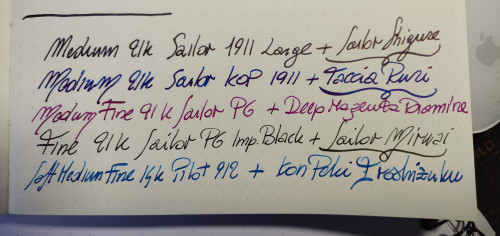 Medium 21k Sailor 1911 Large + Sailor Shigure
Medium 21k Sailor KOP 1911 + Taccia Ruri
Medium Fine 21k Sailor PG + Deep Magenta Diamine
Fine 21k Sailor PG Imp. Black + Sailor
Soft Medium Fine 14k Pilot 912 + Kon Peki Iroshizuku